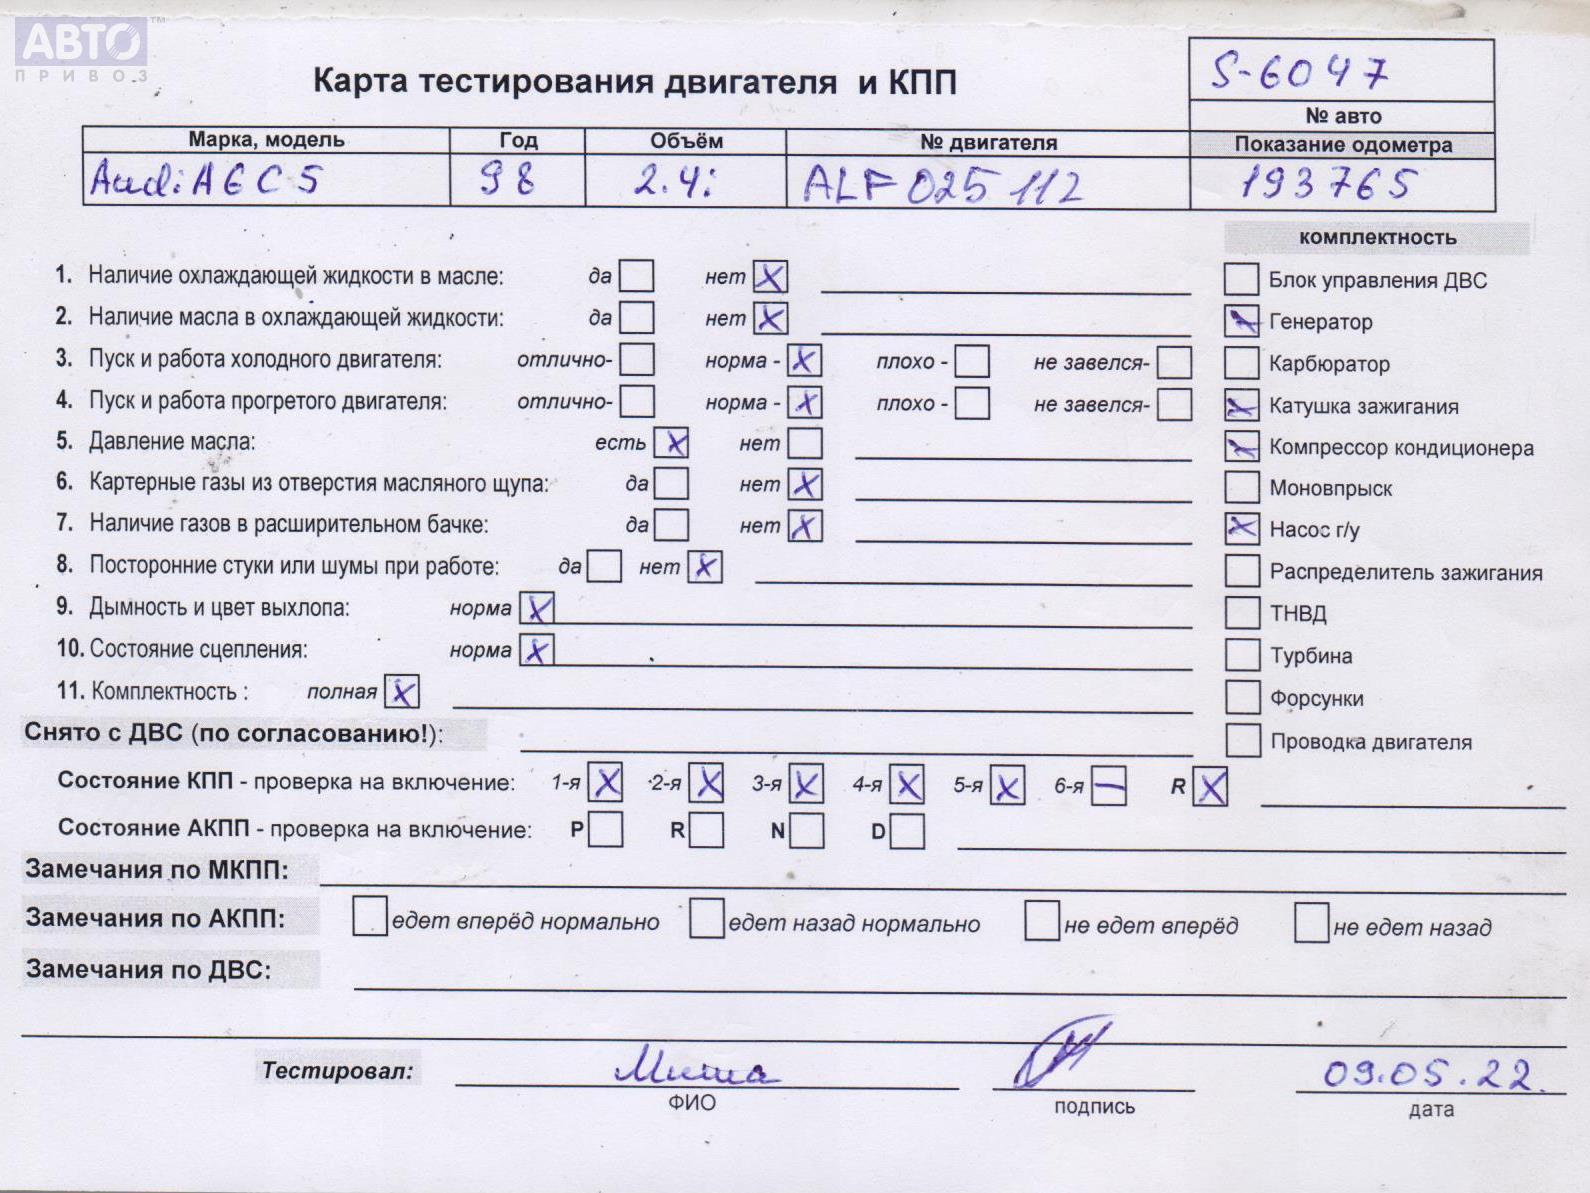 АВТО ™
ПРИВОЗ
Карта тестирования двигателя и КПП
S-6047
№ авто
Марка, модель Год Объём № двигателя Показание одометра
Audi A6 C5 98 2.4i ALF 025 112 193765
комплектность
1. Наличие охлаждающей жидкости в масле: да нет X
Блок управления ДВС
2. Наличие масла в охлаждающей жидкости: да нет X
Генератор X
3. Пуск и работа холодного двигателя: отлично- норма - X плохо - не завелся-
Карбюратор
4. Пуск и работа прогретого двигателя: отлично- норма - X плохо - не завелся-
Катушка зажигания X
5. Давление масла: есть X нет
Компрессор кондиционера X
6. Картерные газы из отверстия масляного щупа: да нет X
Моновпрыск
7. Наличие газов в расширительном бачке: да нет X
Насос г/у X
8. Посторонние стуки или шумы при работе: да нет X
Распределитель зажигания
9. Дымность и цвет выхлопа: норма X
ТНВД
10. Состояние сцепления: норма X
Турбина
11. Комплектность : полная X
Форсунки
Снято с ДВС (по согласованию!):
Проводка двигателя
Состояние КПП - проверка на включение: 1-я X 2-я X 3-я X 4-я X 5-я X 6-я — R X
Состояние АКПП - проверка на включение: P R N D
Замечания по МКПП:
Замечания по АКПП: едет вперёд нормально едет назад нормально не едет вперёд не едет назад
Замечания по ДВС:
Тестировал: Миша 09.05.22.
ФИО подпись дата